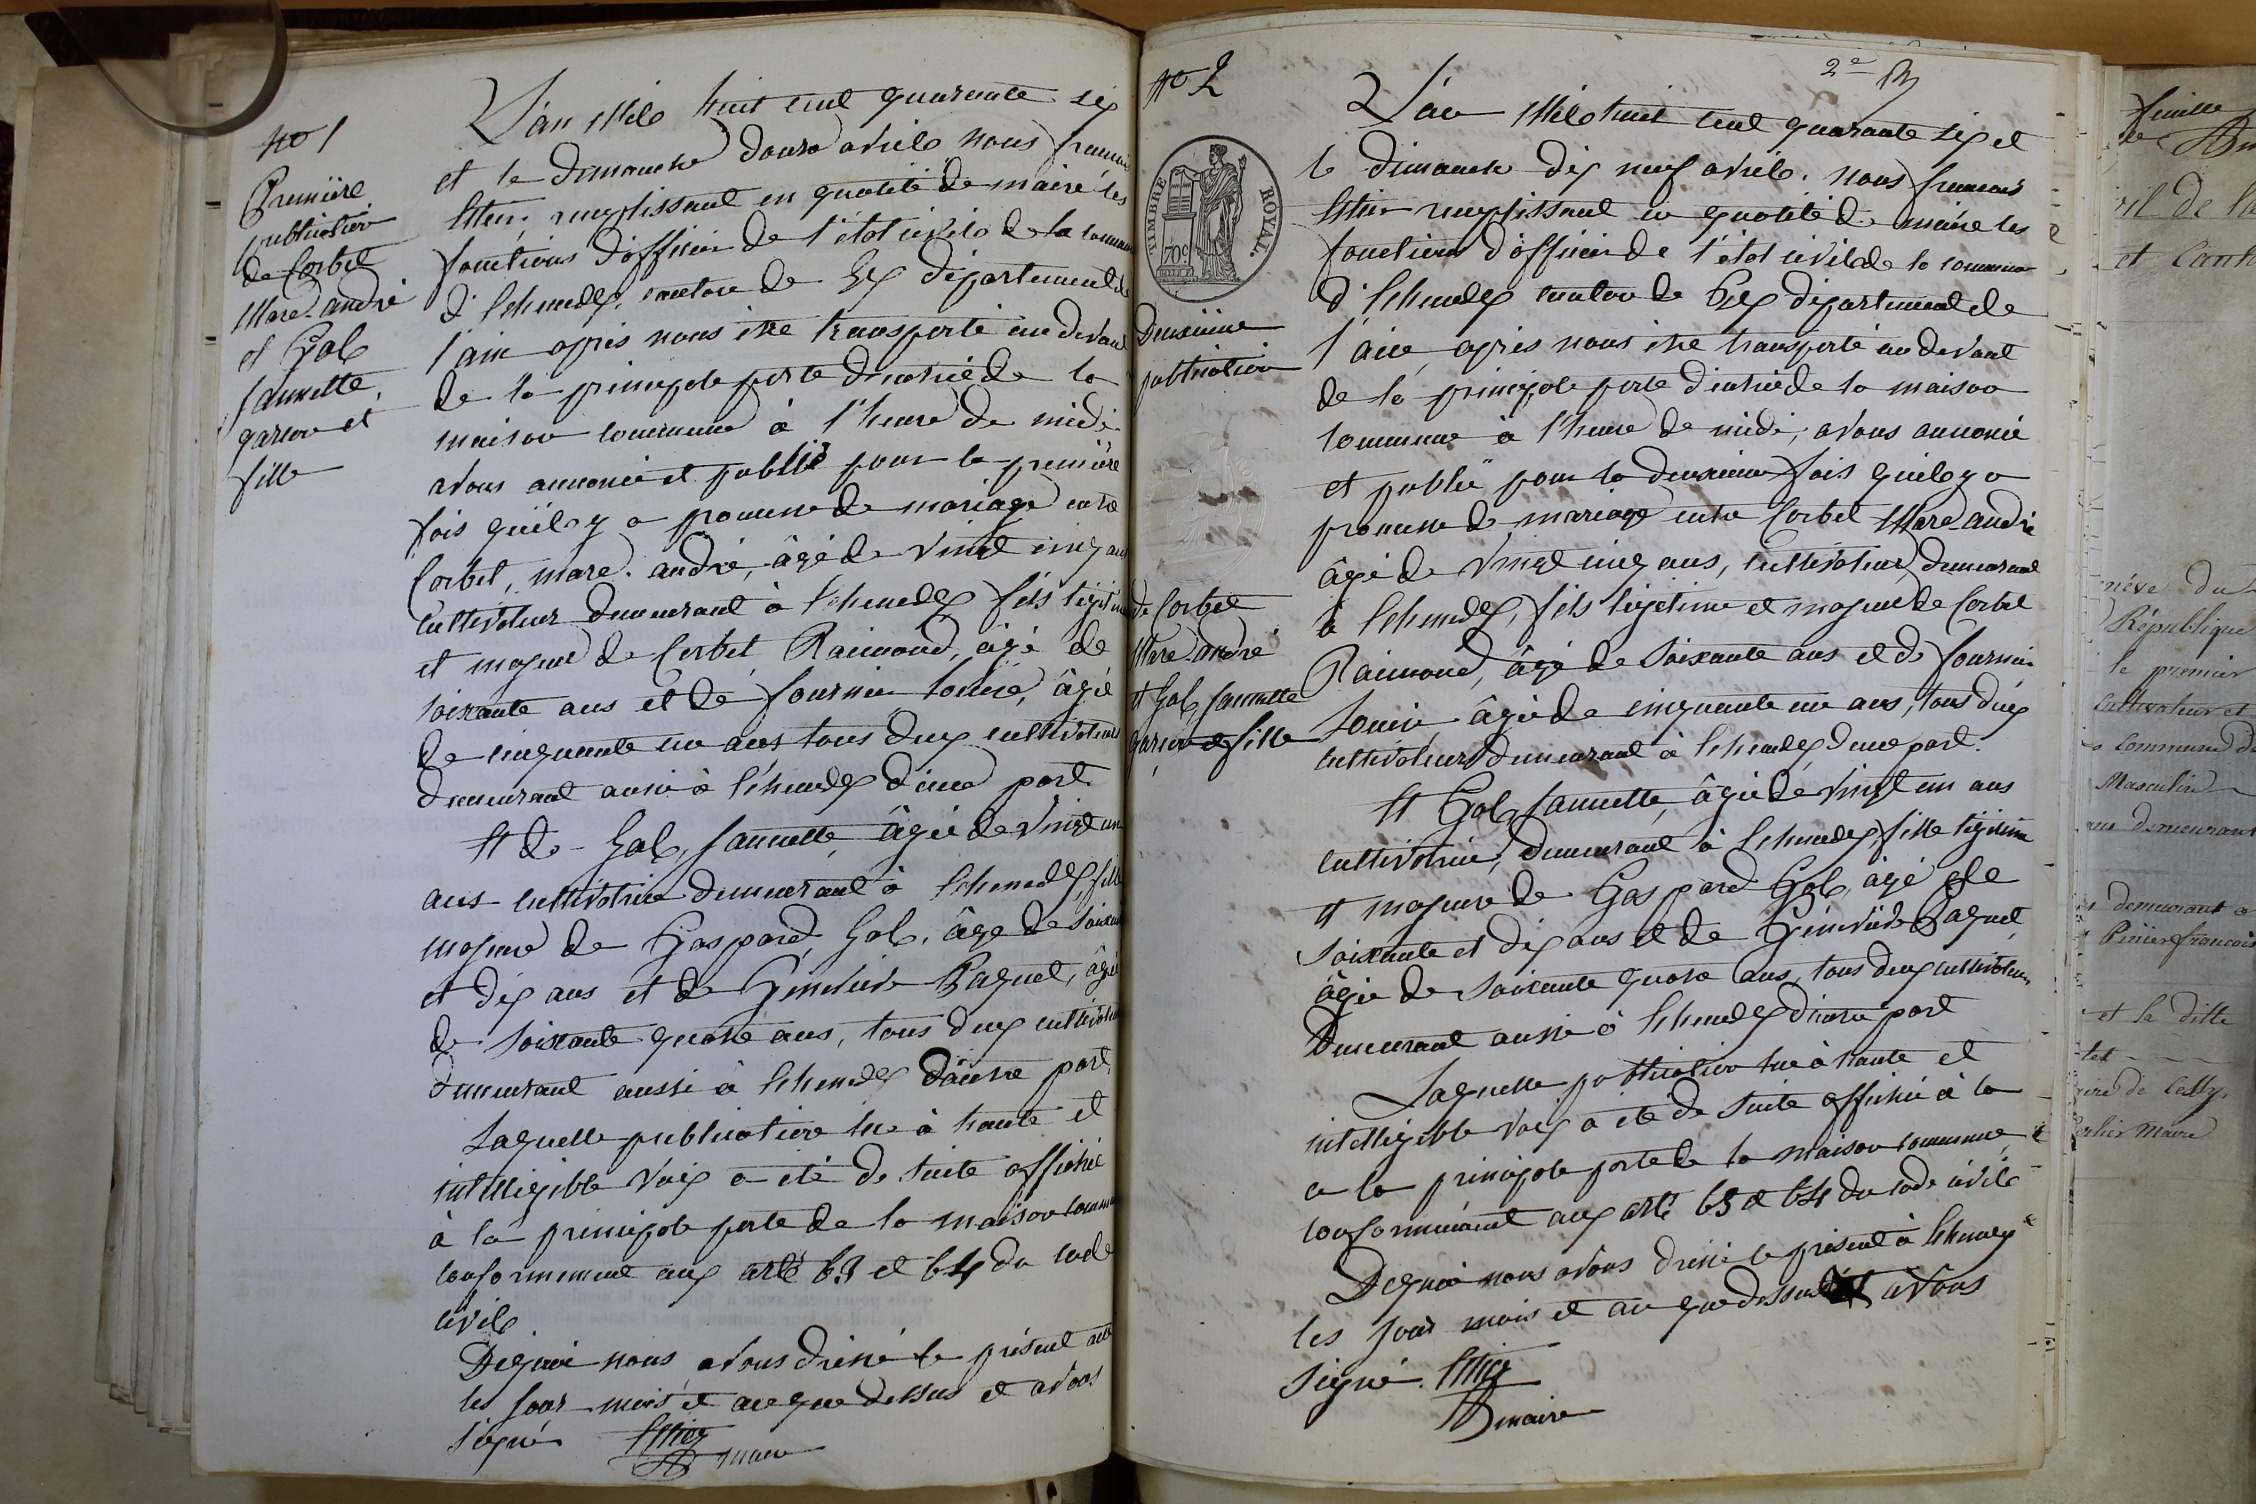 No 1
Première
publication
de Corbet
Marc-andré
et Gal
Jannette,
garcon et
fille
L'an Mile huit cent quarante six
et le dimanche douze avrile nous francois
remplissant en qualité de maire les
fonctions d'officier de l'état civile de la commune
d'Echenevex, canton de Gex département de
l'ain après nous être transporté au devant
de la principale porte d'entrée de la
maison commune à l'heure de midi
avons annoncé et publié pour la première
fois qu'il y a promesse de mariage entre
Corbet, marc. andré, âgé de vingt cinq ans
cultivateur demeurant à Echenevex fils légitime
et majeur de Corbet Raimond, âgé de
soixante ans et de fournier Louise, âgée
de cinquante un ans tous deux cultivateurs
demeurant aussi à Echenevex d'une part
Et de Gal, Jannette, âgée de vingt un
ans cultivatrice demeurant à Echenevex, fille
majeure de Gaspard Gal, âgé de soixante
et dix ans et de Geneviève Paquet, âgée
de soixante quatre ans, tous deux cultivateurs
demeurant aussi à Echenevex d'autre part,
Laquelle publication lue à haute et
intelligible voix a été de suite affiché
à la principale porte de la maison commune
conformement aux arts 63 et 64 du code
civile
De quoi nous avons dressé le présent acte
les jour mois et an que dessus et avons
signé
maire
No 2
2e
TIMBRE ROYAL
70c
Deuxième
publication
de Corbet
Marc-andré
et Gal, Jannette
garcon et fille
L'an Mile huit cent quarante six et
le dimanche dix neuf avrile. nous francois
remplissant en qualité de maire les
fonctions d'officier de l'état civile de la commune
d'Echenevex canton de Gex département de
l'ain, après nous être transporté au devant
de la principale porte d'entrée de la maison
commune à l'heure de midi, avons annoncé
et publié pour la deuxième fois qu'il y a
promesse de mariage entre Corbet Marc-andré
âgé de vingt cinq ans, cultivateur, demeurant
à Echenevex, fils légitime et majeur de Corbet
Raimond, âgé de soixante ans et de fournier
Louise, âgée de cinquante un ans, tous deux
cultivateurs demeurant à Echenevex d'une part.
Et Gal, Jannette, âgée de vingt un ans
cultivatrice, demeurant à Echenevex, fille légitime
et majeure de Gaspard Gal, âgé de
soixante et dix ans et de Geneviève Paquet
âgée de soixante quatre ans, tous deux cultivateurs
demeurant aussi à Echenevex d'autre part
Laquelle publication lue à haute et
intelligible voix a été de suite affichée à la
a la principale porte de la maison commune
conformément aux arts 63 et 64 du code civile
De quoi nous avons dressé le présent à Echenevex
les jour mois et an que dessus et avons
signé.
maire
feuille
de
et Canto
République
le premier
Cultivateur et
commune de
Masculin
demeurant
demeurant a
francois
et la ditte
Maire